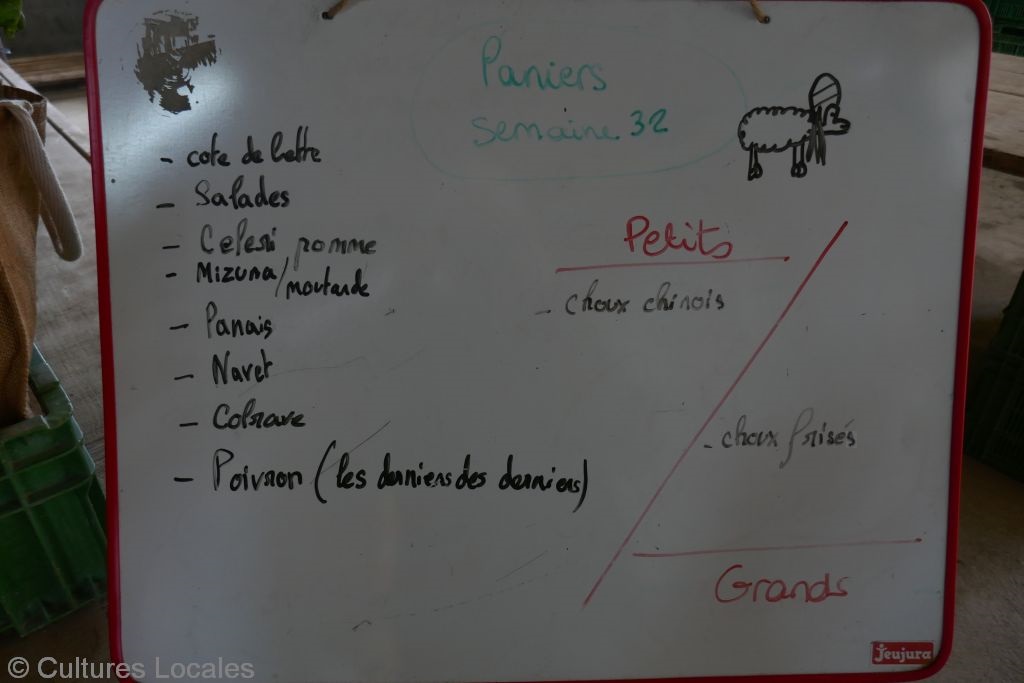 Paniers
semaine 32
- cote de bette
- Salades
- Celeri pomme
- Mizuna/moutarde
- Panais
- Navet
- Colrave
- Poivron (les derniers des derniers)
Petits
- choux chinois
- choux frisés
Grands
Jeujura
© Cultures Locales